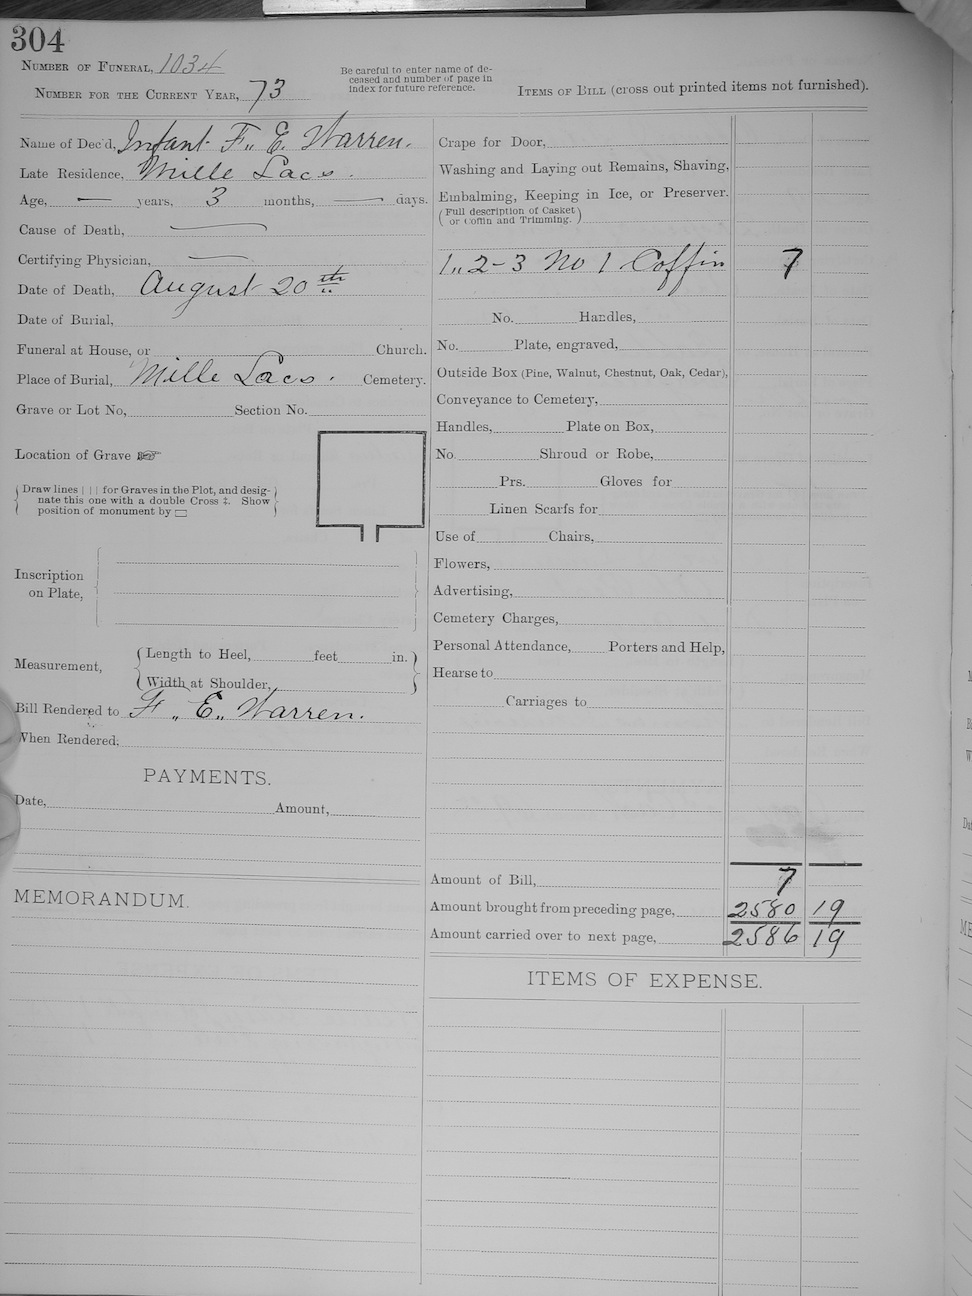 304
NUMBER OF FUNERAL, 1034
NUMBER FOR THE CURRENT YEAR, 73
Be careful to enter name of de-
ceased and number of page in
index for future reference.
ITEMS OF BILL (cross out printed items not furnished).
Name of Dec'd, Infant F,, E. Warren.
Late Residence, Mille Lacs.
Age, — years, 3 months, — days.
Cause of Death, —
Certifying Physician, —
Date of Death, August 20th
Date of Burial,
Funeral at House, or Church.
Place of Burial, Mille Lacs. Cemetery.
Grave or Lot No, Section No.
Location of Grave ☞
(Draw lines | | | for Graves in the Plot, and desig-
nate this one with a double Cross ‡. Show
position of monument by ▭)
Inscription
on Plate,
Measurement,
Length to Heel, feet in.
Width at Shoulder,
Bill Rendered to F,, E,, Warren.
When Rendered:
PAYMENTS.
Date, Amount,
MEMORANDUM.
Crape for Door,
Washing and Laying out Remains, Shaving,
Embalming, Keeping in Ice, or Preserver.
(Full description of Casket
or Coffin and Trimming.)
1,, 2-3 No 1 Coffin 7
No. Handles,
No. Plate, engraved,
Outside Box (Pine, Walnut, Chestnut, Oak, Cedar),
Conveyance to Cemetery,
Handles, Plate on Box,
No. Shroud or Robe,
Prs. Gloves for
Linen Scarfs for
Use of Chairs,
Flowers,
Advertising,
Cemetery Charges,
Personal Attendance, Porters and Help,
Hearse to
Carriages to
Amount of Bill, 7
Amount brought from preceding page, 2580 19
Amount carried over to next page, 2586 19
ITEMS OF EXPENSE.